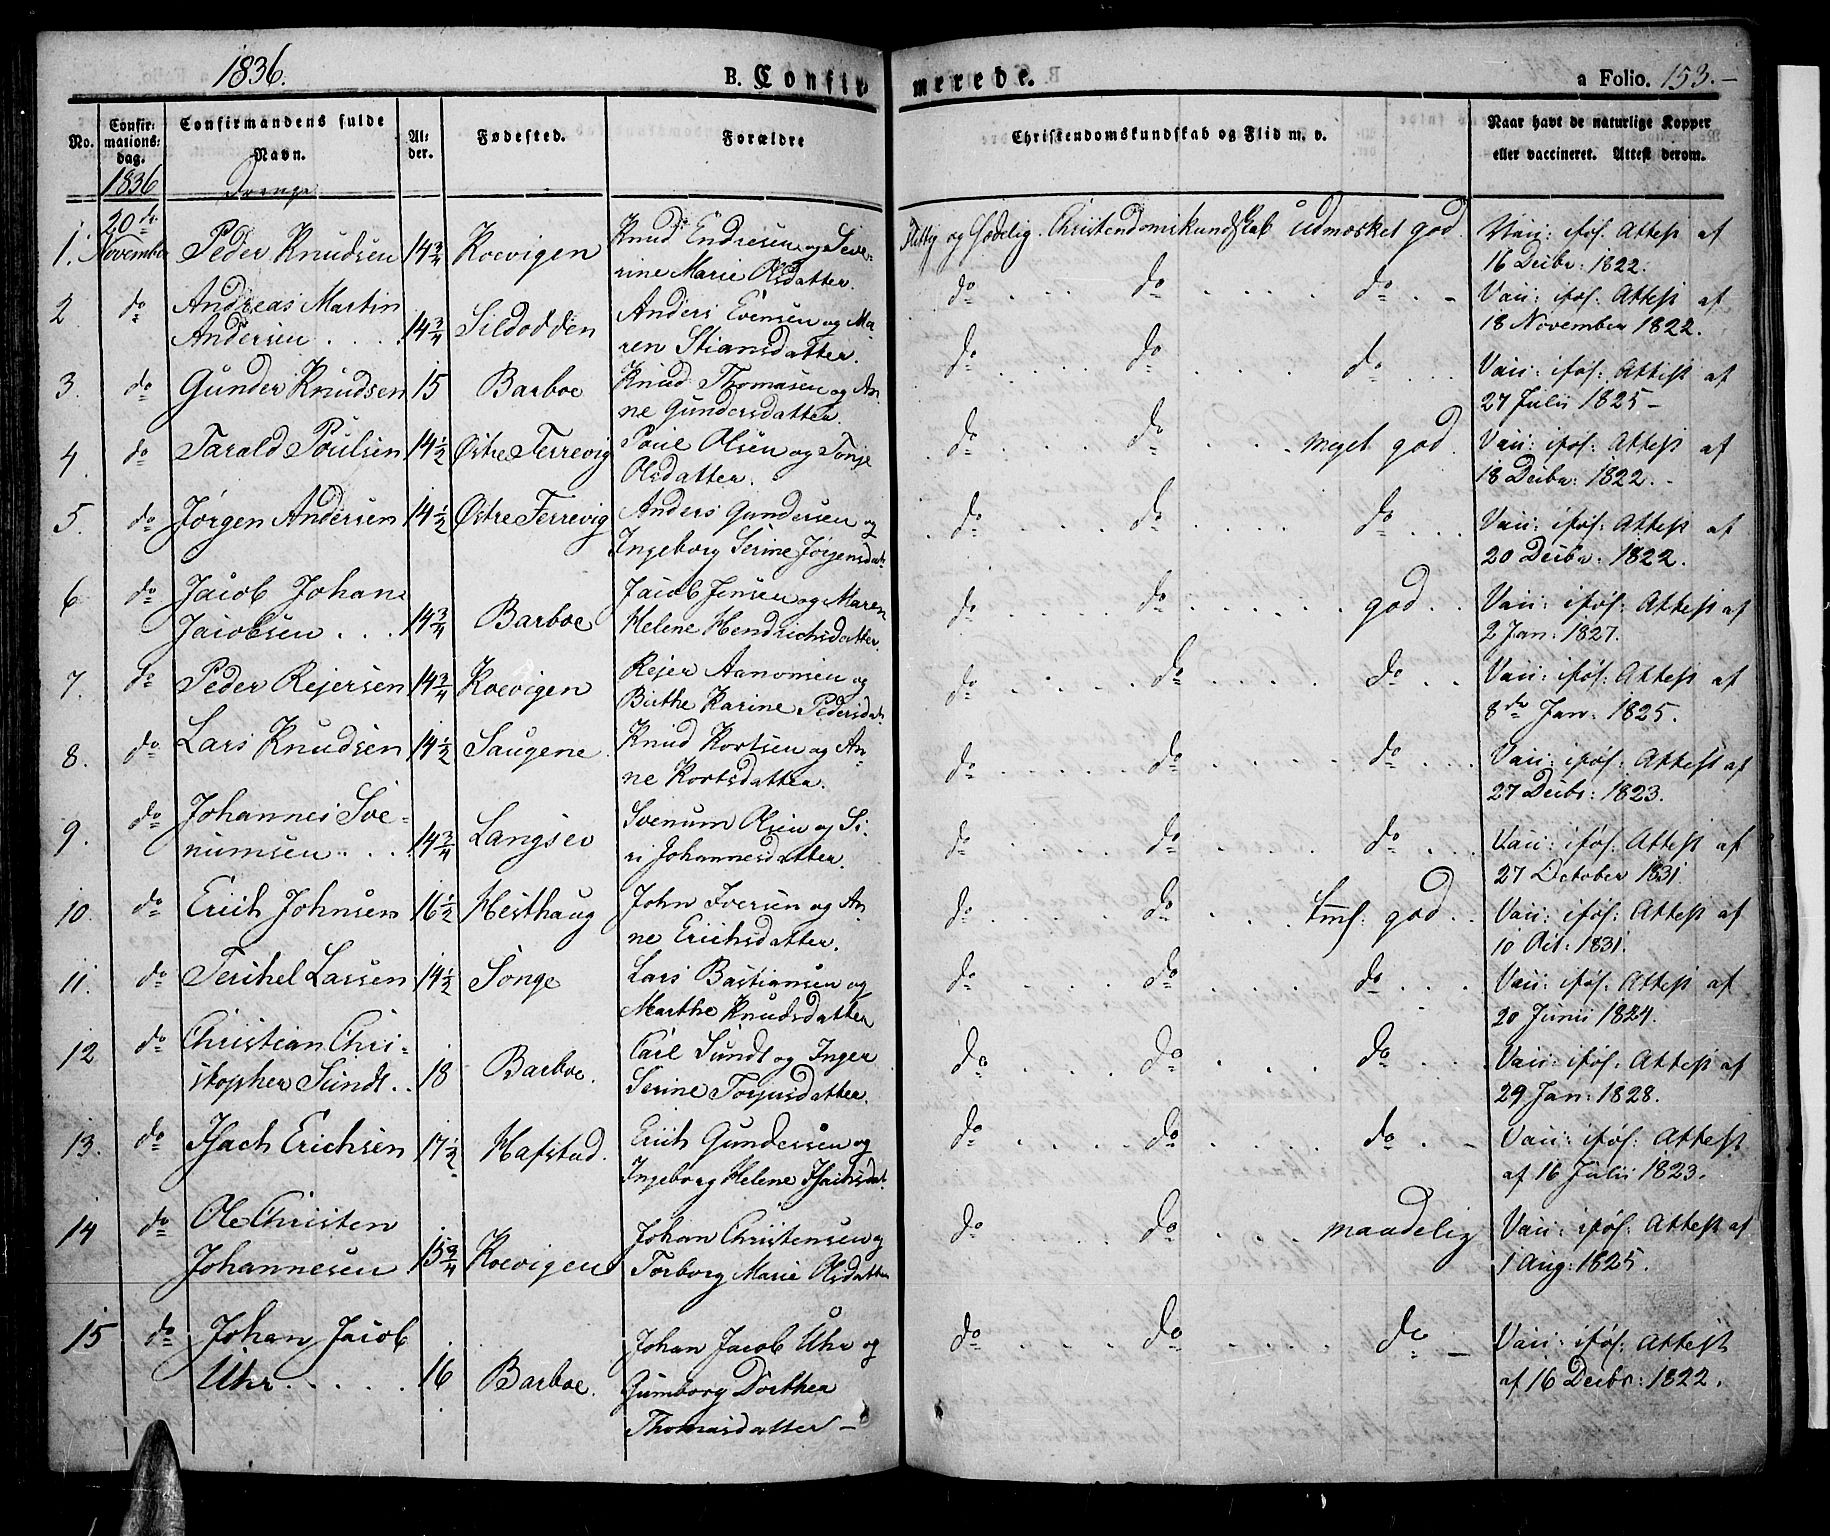 1836.
B. Confir
merede.
a Folio. 153.-
No.
Confir-
mations-
dag.
Confirmandens fulde
Navn.
Al-
der.
Fødested.
Forældre
Christendomskundskab og Flid m. v.
Naar havt de naturlige Kopper
eller vaccineret. Attest derom.
1836
Drenge
1. 20de November Peder Knudsen 14 3/4 Koevigen Knud Endresen og Seve-
rine Marie Olsdatter. Flittig og Sædelig. Christendomskundskab udmærket god. Vacc: iføl. Attest af
16 Decbr: 1822.
2 do Andreas Martin
Andersen . . . . 14 3/4 Sildodden Anders Evensen og Ma-
ren Stiansdatter. do . . . do . . . . do . - Vacc: iføl: Attest af
18 November 1822.
3. do Gunder Knudsen 15 Barboe Knud Thomasen og An-
ne Gundersdatter. do . . . . do . . . . do . . . Vacc: iføl: Attest af
27 Julii 1825-
4. do Tarald Poulsen 14 1/2 Østre Terrevig Poul Olsen og Tonje
Olsdatter. do . . . . do . . . meget god. Vacc: iføl: Attest af
18 Decbr: 1822.-
5. do Jørgen Andersen 14 1/2 Østre Terrevig Anders Gundersen og
Ingeborg Serine Jørgensdat. do . . . . do . . . . do . . . Vacc: iføl: Attest af
20 Decbr: 1822.
6 do Jacob Johan
Jacobsen . . . 14 3/4 Barboe Jacob Jensen og Maren
Helene Hendrichsdatter. do . . . . do . . . . . god. . Vacc: iføl: Attest af
2 Jan: 1827.
7. do Peder Rejersen 14 3/4 Koevigen Rejer Aanonsen og
Birthe Karine Pedersdat. do . . . . do . . . . do . . Vacc: iføl: Attest af
8de Jan: 1825.
8. do Lars Knudsen 14 1/2 Saugene. Knud Kortsen og An-
ne Kortsdatter. do . . . . do . . . . do . . . Vacc: iføl: Attest af
27 Decbr: 1823.
9. do Johannes Sve-
numsen . . . . 14 3/4 Langsev Svenum Olsen og Si-
ri Johannesdatter. do . . . . do . . . . do . . . Vacc: iføl: Attest af
27 October 1831.
10. do Erich Johnsen 16 1/2 Hesthaug John Iversen og An-
ne Erichsdatter. do . . . . do . . . god . . Vacc: iføl: Attest af
10 Oct: 1831.
11. do Terchel Larsen 14 1/2 Songe Lars Bastiansen og
Marthe Knudsdatter do . . . . do . . . . do . . . Vacc: iføl: Attest af
20 Junii 1824.
12 do Christian Chri-
stopher Sundt . . 18 Barboe. Carl Sundt og Inger
Serine Torjusdatter. do . . . . do . . . . do . . . Vacc: iføl: Attest af
29 Jan: 1828.
13. do Isach Erichsen 17 1/2 Hafstad. Erich Gundersen og
Ingeborg Helene Isachsdat. do . . . . do . . . . do . - Vacc: iføl: Attest
af 16 Julii 1823.
14 do Ole Christen
Johannesen 15 3/4 Koevigen Johan Christensen og
Torborg Marie Olsdatter do . . . . do . . . maadelig Vacc: iføl: Attest af
1 Aug: 1825.
15 do Johan Jacob
Uhr . . . . . 16 Barboe. Johan Jacob Uhr og
Gumborg Dorthea
Thomasdatter - do . . . . do . . . . do - Vacc: iføl: Attest
af 16 Decbr: 1822.